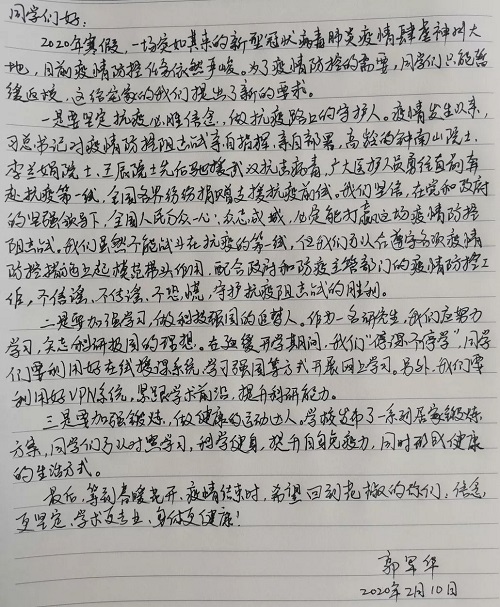 同学们好:
2020年寒假,一场突如其来的新型冠状病毒肺炎疫情肆虐神州大
地,目前疫情防控任务依然严峻。为了疫情防控的需要,同学们只能暂
缓返校,这给在家的我们提出了新的要求。
一是要坚定抗疫必胜信念,做抗疫路上的守护人。疫情发生以来,
习总书记对疫情防控阻击战亲自指挥,亲自部署,高龄的钟南山院士、
李兰娟院士、王辰院士先后驰援武汉抗击病毒,广大医护人员勇往直前奔
赴抗疫第一线,全国各界纷纷捐赠支援抗疫前线。我们坚信,在党和政府
的坚强领导下,全国人民万众一心,众志成城,必定能打赢这场疫情防控
阻击战。我们虽然不能战斗在抗疫的第一线,但我们可以在遵守各项疫情
防控措施上起模范带头作用,配合政府和防疫主管部门的疫情防控工
作,不信谣、不传谣、不恐慌,守护抗疫阻击战的胜利。
二是要加强学习,做科技强国的追梦人。作为一名研究生,我们应努力
学习,矢志科研报国的理想。在延缓开学期间,我们“停课不停学”,同学
们要利用好在线授课系统,学习强国等方式开展网上学习。另外,我们要
利用好VPN系统,紧跟学术前沿,提升科研能力。
三是要加强锻炼,做健康的运动达人。学校发布了一系列居家锻炼
方案,同学们可以对照学习,科学健身,提升自身免疫力,同时形成健康
的生活方式。
最后,等到春暖花开、疫情结束时,希望回到的你们,信念
更坚定,学术更专业,身体更健康!
郭军华
2020年2月10日